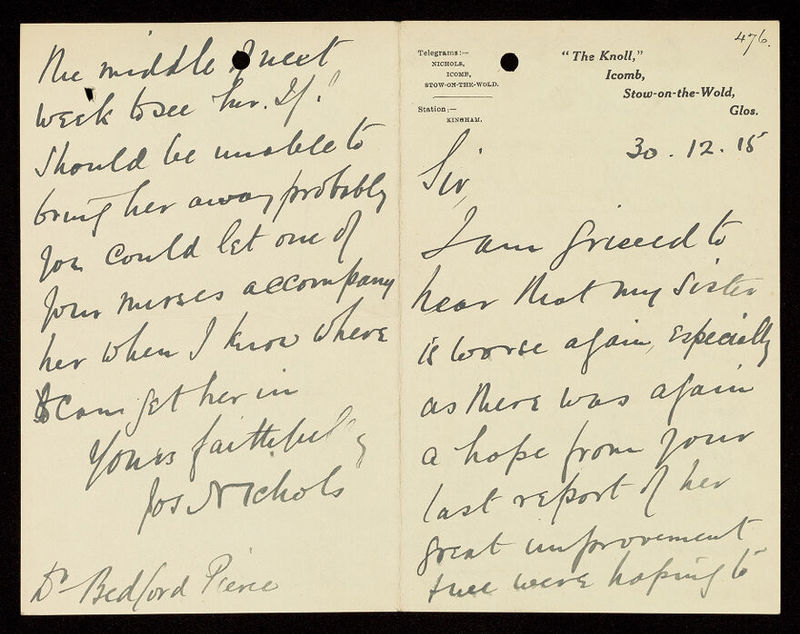 476.
Telegrams:—
NICHOLS,
ICOMB,
STOW-ON-THE-WOLD.
Station:—
KINGHAM.
"The Knoll,"
Icomb,
Stow-on-the-Wold,
Glos.
30.12.15
Sir,
I am grieved to
hear that my Sister
is worse again, especially
as there was again
a hope from your
last report of her
great improvement
& we were hoping to
the middle of next
week to see her. If I
should be unable to
bring her away probably
you could let one of
your nurses accompany
her when I know where
I can get her in
Yours faithfully
Jos Nichols
Dr Bedford Pierce